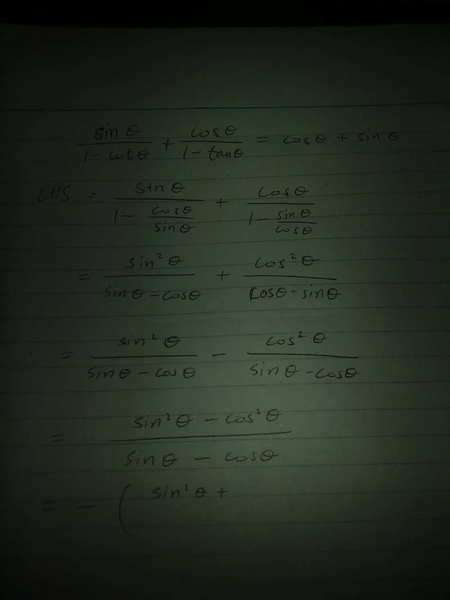 sin θ / 1 - cot θ + cos θ / 1 - tan θ = cos θ + sin θ
LHS = sin θ / 1 - cos θ / sin θ + cos θ / 1 - sin θ / cos θ
= sin² θ / sin θ - cos θ + cos² θ / cos θ - sin θ
= sin² θ / sin θ - cos θ - cos² θ / sin θ - cos θ
= sin² θ - cos² θ / sin θ - cos θ
= - ( sin² θ +